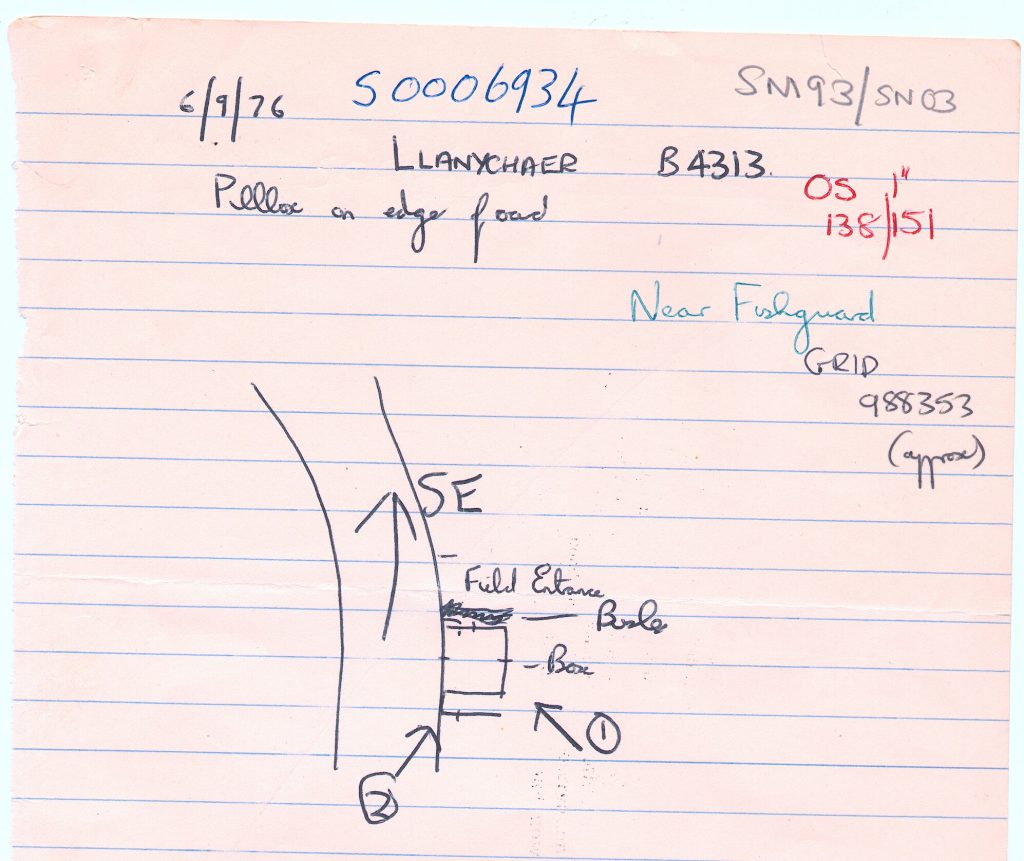 6/9/76 S0006934 SM93/SN03
LLANYCHAER B4313.
Pillbox on edge of road
OS 1"
138/151
Near Fishguard
GRID
988353
(approx)
SE
Field Entrance
Bushes
Box
1
2